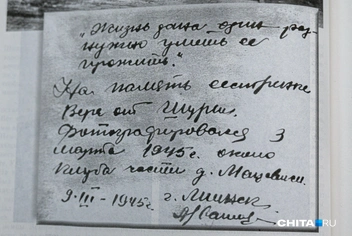 „Жизнь дана один раз
нужно уметь ее
прожить."
На память сестренке
Вере от Шурки.
Фотографировался 3
марта 1945г. около
клуба части д. Мацевичи.
9-III-1945г. г. Минск
CHITA.RU